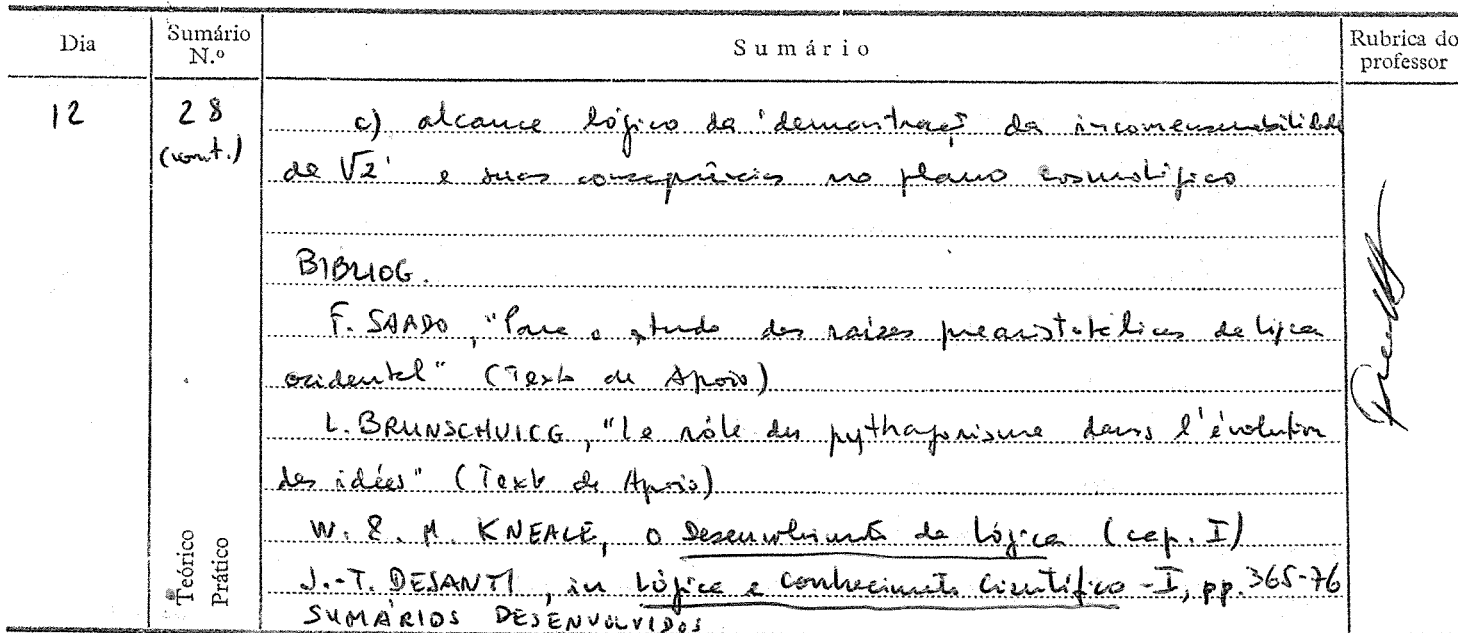 Dia
Sumário N.º
Sumário
Rubrica do professor
12
28
(cont.)
c) alcance lógico da 'demonstração da incomensurabilidade
de √2' e suas consequências no plano cosmológico
BIBLIOG.
F. SARDO, "Para o estudo das raízes prearistotélicas da lógica
ocidental" (Texto de Apoio)
L. BRUNSCHVICG, "Le rôle du pythagorisme dans l'évolution
des idées" (Texto de Apoio)
W. & M. KNEALE, O Desenvolvimento da Lógica (cap. I)
J.-T. DESANTI, in Lógica e Conhecimento Científico - I, pp. 365-76
SUMÁRIOS DESENVOLVIDOS
Teórico
Prático